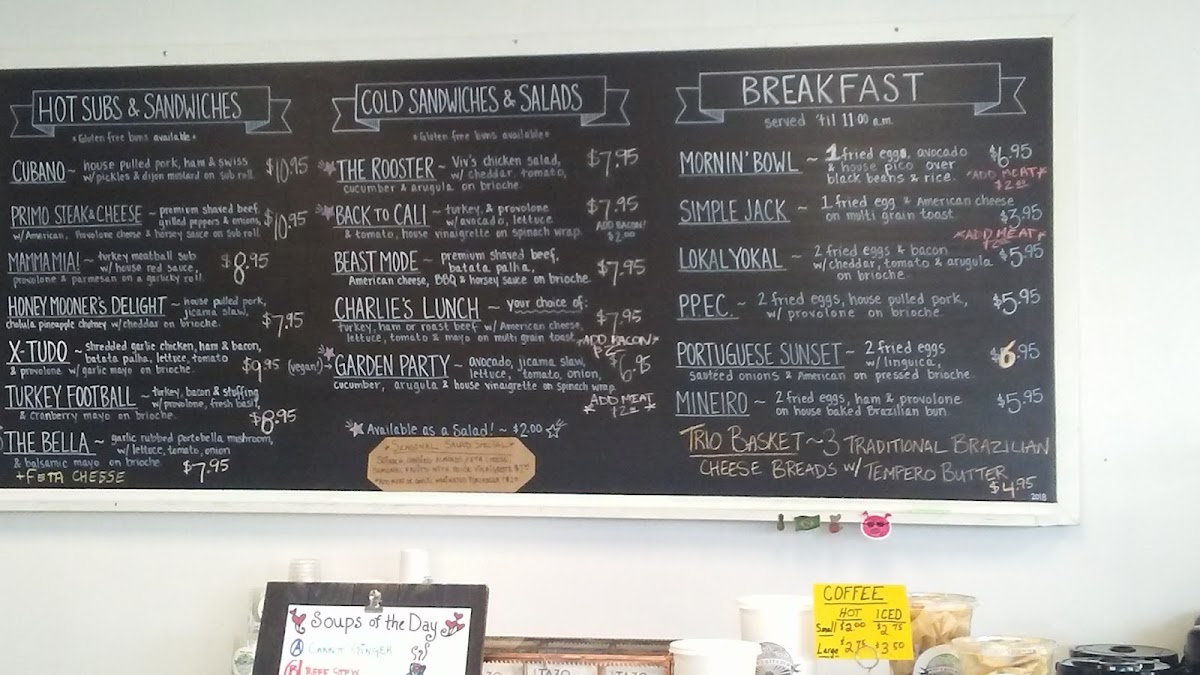 HOT SUBS & SANDWICHES
*Gluten free buns available*
CUBANO ~ house pulled pork, ham & swiss
w/pickles & dijon mustard on sub roll $10.95
PRIMO STEAK & CHEESE ~ premium shaved beef,
grilled peppers & onions, $10.95
w/American, Provolone cheese & horsey sauce on sub roll
MAMMA MIA! ~ turkey meatball sub
w/house red sauce, $8.95
provolone & parmesan on a garlicky roll.
HONEY MOONER'S DELIGHT ~ house pulled pork,
jicama slaw,
cholula pineapple chutney w/cheddar on brioche. $7.95
X-TUDO ~ shredded garlic chicken, ham & bacon,
batata palha, lettuce, tomato
& provolone w/garlic mayo on brioche. $9.95
TURKEY FOOTBALL ~ turkey, bacon & stuffing
w/provolone, fresh basil
& cranberry mayo on brioche $8.95
THE BELLA ~ garlic rubbed portobella mushroom,
w/lettuce, tomato, onion
& balsamic mayo on brioche $7.95
+FETA CHESSE
COLD SANDWICHES & SALADS
*Gluten free buns available*
THE ROOSTER ~ Viv's chicken salad, $7.95
w/cheddar, tomato,
cucumber & arugula on brioche.
BACK TO CALI ~ turkey, & provolone $7.95
w/avocado, lettuce ADD BACON!
& tomato, house vinaigrette on spinach wrap $2.00
BEAST MODE ~ premium shaved beef,
batata palha, $7.95
American cheese, BBQ & horsey sauce on brioche.
CHARLIE'S LUNCH ~ your choice of:
turkey, ham or roast beef w/American cheese, $7.95
lettuce, tomato & mayo on multi grain toast. *ADD BACON*
$2
(vegan!) → GARDEN PARTY ~ avocado, jicama slaw, $6.95
lettuce, tomato, onion,
cucumber, arugula & house vinaigrette on spinach wrap
*ADD MEAT*
$2.00
Available as a Salad! ~ $2.00
*SEASONAL SALAD SPECIAL*
BREAKFAST
served 'til 11:00 a.m.
MORNIN' BOWL ~ 1 fried eggs, avocado $6.95
& house pico over
black beans & rice. *ADD MEAT*
$2.00
SIMPLE JACK ~ 1 fried egg & American cheese
on multi grain toast $3.95
*ADD MEAT*
LOKAL YOKAL ~ 2 fried eggs & bacon
w/cheddar, tomato & arugula $5.95
on brioche
P.P.E.C. ~ 2 fried eggs, house pulled pork, $5.95
w/provolone on brioche.
PORTUGUESE SUNSET ~ 2 fried eggs $6.95
w/linguica,
sauteed onions & American on pressed brioche.
MINEIRO ~ 2 fried eggs, ham & provolone $5.95
on house baked Brazilian bun.
TRIO BASKET ~ 3 TRADITIONAL BRAZILIAN
CHEESE BREADS W/ TEMPERO BUTTER
$4.95
2018
Soups of the Day
A CARROT GINGER
B BEEF STEW
COFFEE
HOT ICED
Small $2.00 $2.75
Large $2.75 $3.50
TAZO